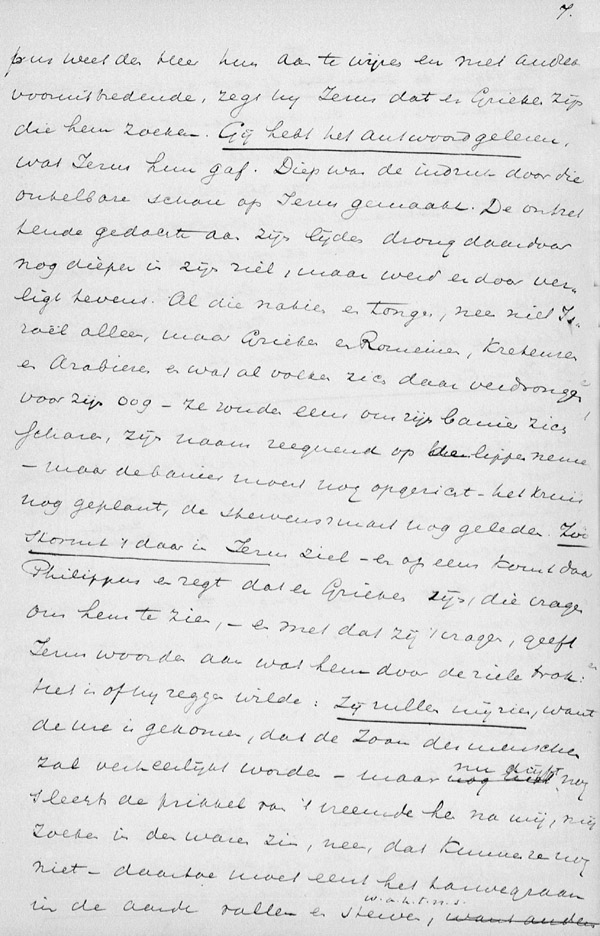 7.
pus weet den Heer hun aan te wijzen en met Andreas
vooruittredende, zegt hy Jezus dat er Grieken zijn
die hem zoeken. Gij hebt het antwoord gelezen,
wat Jezus hun gaf. Diep was de indruk door die
ontelbare schare op Jezus gemaakt. De ontzet
tende gedachte aan zijn lijden drong daardoor
nog dieper in zijn ziel, maar werd er door ver-
ligt tevens. Al die natien en tongen, nee niet Is-
raël alleen, maar Grieken en Romeinen, Kretenzen
en Arabieren en wat al volken zich daar verdrongen
voor zijn oog – ze zouden eens om zijn banier zich
scharen, zijn naam zeegnend op de lippen nemen
– maar de banier moest nog opgericht – het kruis
nog geplant, de stervenssmart nog geleden. Zoo
stormt 't daar in Jezus ziel – en op eens komt daar
Philippus en zegt dat er Grieken zijn, die vragen
om hem te zien, – en met dat zij 't vragen, geeft
Jezus woorden aan wat hem door de ziele trok:
Het is of hy zeggen wilde: Zij willen mij zien, want
de ure is gekomen, dat de Zoon des menschen
zal verheerlijkt worden – maar nu drijft
nog
slechts de prikkel van 't vreemde hen na mij, mij
zoeken in den waren zin, nee, dat kunnen ze nog
niet – daartoe moet eerst het tarwegraan
w.a.h.t.n.s.
in de aarde vallen en sterven, want anders